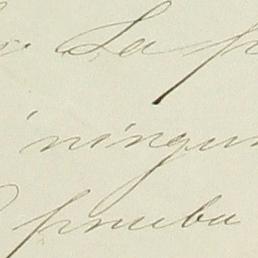 La
ningun
prueba